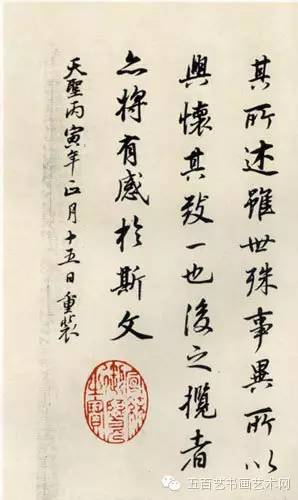 其所述雖世殊事異所以
興懷其致一也後之攬者
亦將有感於斯文
天聖丙寅年正月十五日重裝
宣統御覽之寶
五百艺书画艺术网